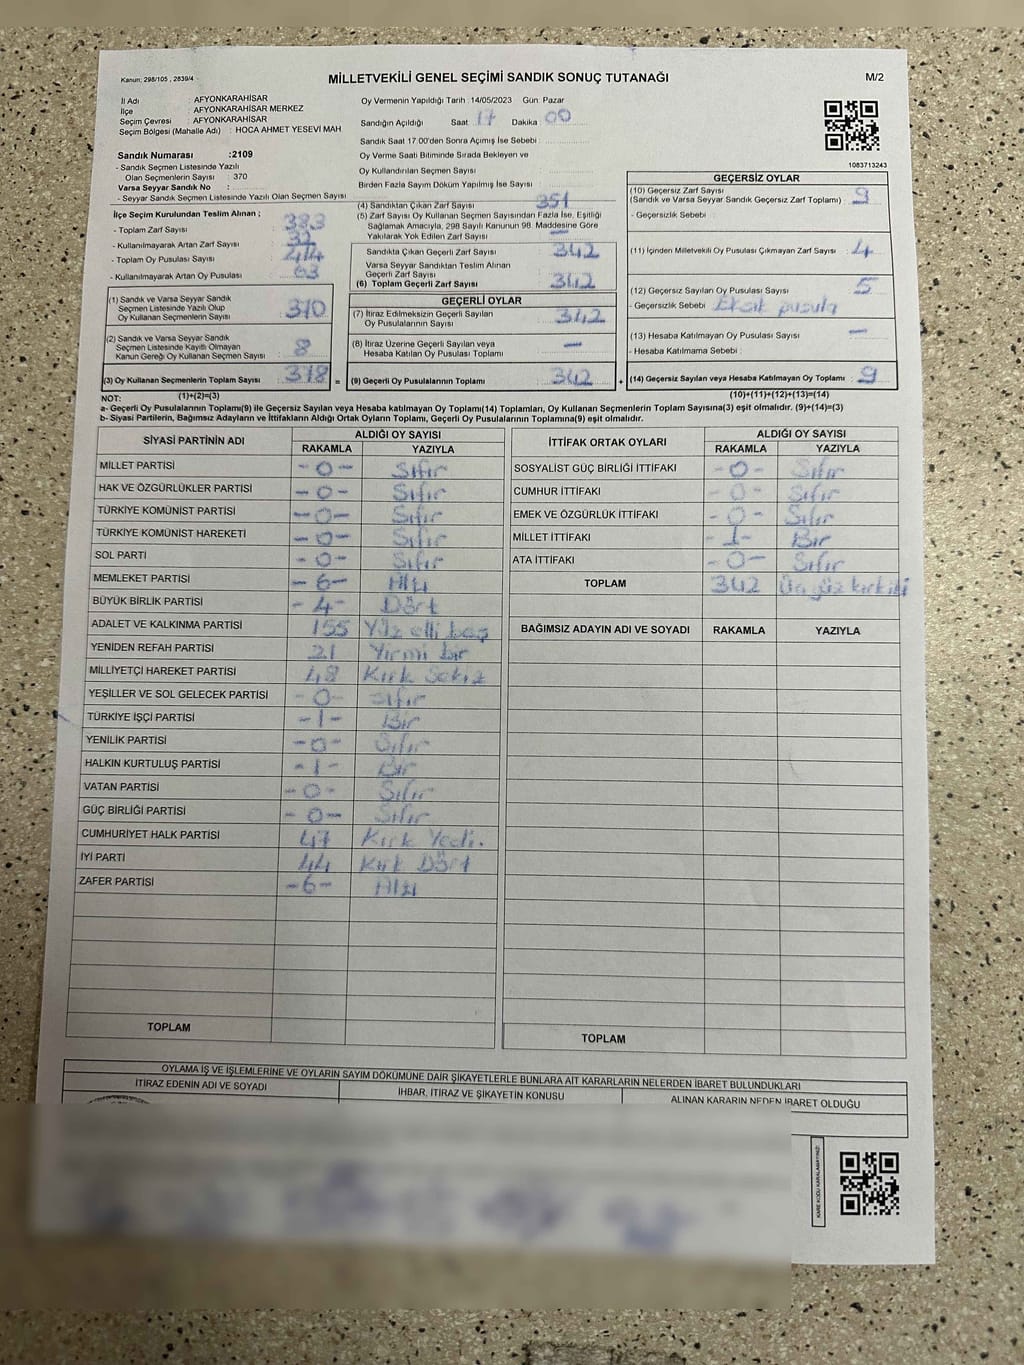 Kanun: 298/105 , 2839/4
MİLLETVEKİLİ GENEL SEÇİMİ SANDIK SONUÇ TUTANAĞI
M/2
İl Adı : AFYONKARAHİSAR
İlçe : AFYONKARAHİSAR MERKEZ
Seçim Çevresi : AFYONKARAHİSAR
Seçim Bölgesi (Mahalle Adı) : HOCA AHMET YESEVİ MAH
Sandık Numarası :2109
- Sandık Seçmen Listesinde Yazılı
Olan Seçmenlerin Sayısı : 370
Varsa Seyyar Sandık No :
- Seyyar Sandık Seçmen Listesinde Yazılı Olan Seçmen Sayısı
Oy Vermenin Yapıldığı Tarih :14/05/2023 Gün: Pazar
Sandığın Açıldığı Saat 17 Dakika : 00
Sandık Saat 17:00'den Sonra Açımış İse Sebebi :
Oy Verme Saati Bitiminde Sırada Bekleyen ve
Oy Kullandırılan Seçmen Sayısı :
Birden Fazla Sayım Döküm Yapılmış İse Sayısı
1083713243
İlçe Seçim Kurulundan Teslim Alınan ;
- Toplam Zarf Sayısı : 383
- Kullanılmayarak Artan Zarf Sayısı : 32
- Toplam Oy Pusulası Sayısı : 414
- Kullanılmayarak Artan Oy Pusulası : 63
(1) Sandık ve Varsa Seyyar Sandık
Seçmen Listesinde Yazılı Olup
Oy Kullanan Seçmenlerin Sayısı : 370
(2) Sandık ve Varsa Seyyar Sandık
Seçmen Listesinde Kayıtlı Olmayan
Kanun Gereği Oy Kullanan Seçmen Sayısı : 8
(3) Oy Kullanan Seçmenlerin Toplam Sayısı : 378
=
(4) Sandıktan Çıkan Zarf Sayısı : 351
(5) Zarf Sayısı Oy Kullanan Seçmen Sayısından Fazla İse, Eşitliği
Sağlamak Amacıyla, 298 Sayılı Kanunun 98. Maddesine Göre
Yakılarak Yok Edilen Zarf Sayısı : —
Sandıkta Çıkan Geçerli Zarf Sayısı : 342
Varsa Seyyar Sandıktan Teslim Alınan
Geçerli Zarf Sayısı :
(6) Toplam Geçerli Zarf Sayısı : 342
GEÇERLİ OYLAR
(7) İtiraz Edilmeksizin Geçerli Sayılan
Oy Pusulalarının Sayısı : 342
(8) İtiraz Üzerine Geçerli Sayılan veya
Hesaba Katılan Oy Pusulası Toplamı : —
(9) Geçerli Oy Pusulalarının Toplamı : 342
+
GEÇERSİZ OYLAR
(10) Geçersiz Zarf Sayısı
(Sandık ve Varsa Seyyar Sandık Geçersiz Zarf Toplamı) : 9
- Geçersizlik Sebebi :
(11) İçinden Milletvekili Oy Pusulası Çıkmayan Zarf Sayısı : 4
(12) Geçersiz Sayılan Oy Pusulası Sayısı : 5
- Geçersizlik Sebebi : Eksik pusula
(13) Hesaba Katılmayan Oy Pusulası Sayısı : —
- Hesaba Katılmama Sebebi :
(14) Geçersiz Sayılan veya Hesaba Katılmayan Oy Toplamı : 9
NOT: (1)+(2)=(3)
(10)+(11)+(12)+(13)=(14)
a- Geçerli Oy Pusulalarının Toplamı(9) ile Geçersiz Sayılan veya Hesaba katılmayan Oy Toplamı(14) Toplamları, Oy Kullanan Seçmenlerin Toplam Sayısına(3) eşit olmalıdır. (9)+(14)=(3)
b- Siyasi Partilerin, Bağımsız Adayların ve İttifakların Aldığı Ortak Oyların Toplamı, Geçerli Oy Pusulalarının Toplamına(9) eşit olmalıdır.
SİYASİ PARTİNİN ADI ALDIĞI OY SAYISI
RAKAMLA YAZIYLA
MİLLET PARTİSİ -0- Sıfır
HAK VE ÖZGÜRLÜKLER PARTİSİ -0- Sıfır
TÜRKİYE KOMÜNİST PARTİSİ -0- Sıfır
TÜRKİYE KOMÜNİST HAREKETİ -0- Sıfır
SOL PARTİ -0- Sıfır
MEMLEKET PARTİSİ -6- Altı
BÜYÜK BİRLİK PARTİSİ -4- Dört
ADALET VE KALKINMA PARTİSİ 155 Yüz elli beş
YENİDEN REFAH PARTİSİ 21 Yirmi bir
MİLLİYETÇİ HAREKET PARTİSİ 48 Kırk Sekiz
YEŞİLLER VE SOL GELECEK PARTİSİ -0- Sıfır
TÜRKİYE İŞÇİ PARTİSİ -1- Bir
YENİLİK PARTİSİ -0- Sıfır
HALKIN KURTULUŞ PARTİSİ -1- Bir
VATAN PARTİSİ -0- Sıfır
GÜÇ BİRLİĞİ PARTİSİ -0- Sıfır
CUMHURİYET HALK PARTİSİ 47 Kırk Yedi.
İYİ PARTİ 44 Kırk Dört
ZAFER PARTİSİ -6- Altı
TOPLAM
İTTİFAK ORTAK OYLARI ALDIĞI OY SAYISI
RAKAMLA YAZIYLA
SOSYALİST GÜÇ BİRLİĞİ İTTİFAKI -0- Sıfır
CUMHUR İTTİFAKI -0- Sıfır
EMEK VE ÖZGÜRLÜK İTTİFAKI -0- Sıfır
MİLLET İTTİFAKI -1- Bir
ATA İTTİFAKI -0- Sıfır
TOPLAM 342 Üç yüz kırk iki
BAĞIMSIZ ADAYIN ADI VE SOYADI RAKAMLA YAZIYLA
TOPLAM
OYLAMA İŞ VE İŞLEMLERİNE VE OYLARIN SAYIM DÖKÜMÜNE DAİR ŞİKAYETLERLE BUNLARA AİT KARARLARIN NELERDEN İBARET BULUNDUKLARI
İTİRAZ EDENİN ADI VE SOYADI İHBAR, İTİRAZ VE ŞİKAYETİN KONUSU ALINAN KARARIN NEDEN İBARET OLDUĞU
KARE KODU KARALAMAYINIZ!